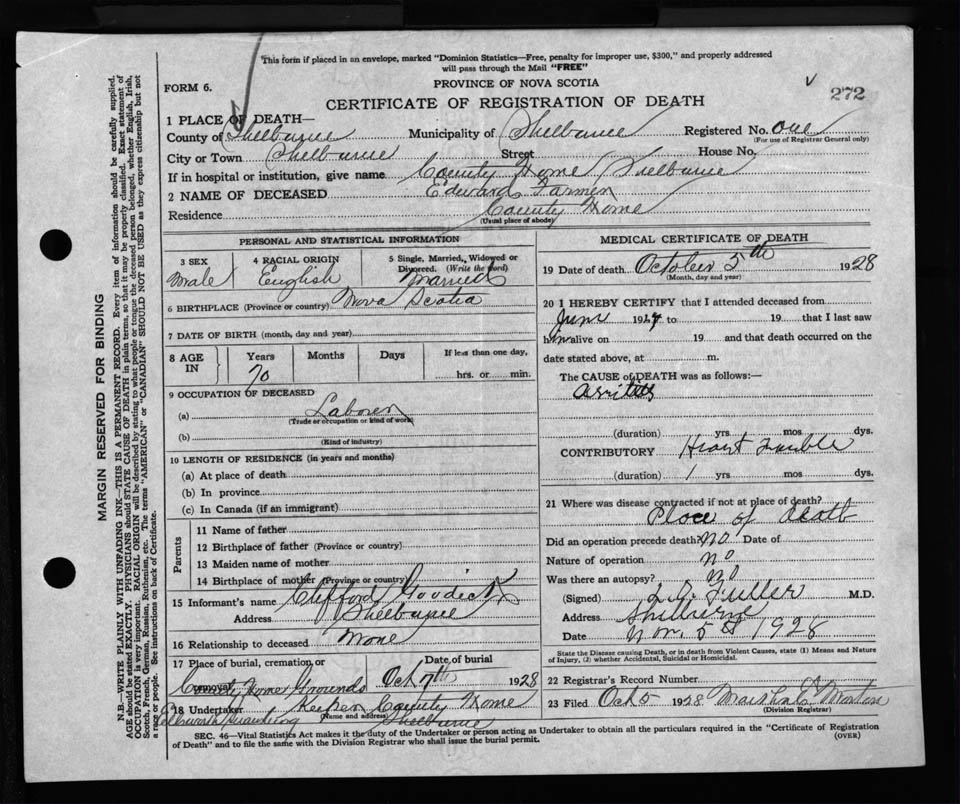 This form if placed in an envelope, marked "Dominion Statistics—Free, penalty for improper use, $300," and properly addressed
will pass through the Mail "FREE"
FORM 6.
PROVINCE OF NOVA SCOTIA
272
CERTIFICATE OF REGISTRATION OF DEATH
1 PLACE OF DEATH—
County of Shelburne Municipality of Shelburne Registered No. one
(For use of Registrar General only)
City or Town Shelburne Street House No.
If in hospital or institution, give name County Home Shelburne
2 NAME OF DECEASED Edward Farmer
Residence County Home
(Usual place of abode)
PERSONAL AND STATISTICAL INFORMATION
3 SEX 4 RACIAL ORIGIN 5 Single, Married, Widowed or Divorced. (Write the word)
Male English Married
6 BIRTHPLACE (Province or country) Nova Scotia
7 DATE OF BIRTH (month, day and year)
8 AGE IN Years Months Days If less than one day,
70 hrs. or min.
9 OCCUPATION OF DECEASED
(a) Laborer
(Trade or occupation or kind of work)
(b)
(Kind of industry)
10 LENGTH OF RESIDENCE (in years and months)
(a) At place of death
(b) In province
(c) In Canada (if an immigrant)
Parents
11 Name of father
12 Birthplace of father (Province or country)
13 Maiden name of mother
14 Birthplace of mother (Province or country)
15 Informant's name Clifford
Address Shelburne
16 Relationship to deceased None
17 Place of burial, cremation or Date of burial
Home Grounds Oct 7th 1928
18 Undertaker Keeper County Home
(Name and address) Shelburne
MEDICAL CERTIFICATE OF DEATH
19 Date of death October 5th 1928
(Month, day and year)
20 I HEREBY CERTIFY that I attended deceased from
June 19 to 19 that I last saw
him alive on 19 and that death occurred on the
date stated above, at m.
The CAUSE of DEATH was as follows:—
(duration) yrs mos dys.
CONTRIBUTORY Heart Trouble
(duration) 1 yrs mos dys.
21 Where was disease contracted if not at place of death?
Place of death
Did an operation precede death? No Date of
Nature of operation No
Was there an autopsy? No
(Signed) Fuller M.D.
Address Shelburne
Date Nov. 5th 1928
State the Disease causing Death, or in death from Violent Causes, state (1) Means and Nature
of Injury, (2) whether Accidental, Suicidal or Homicidal.
22 Registrar's Record Number
23 Filed Oct 5 1928 Marshal Morton
(Division Registrar)
SEC. 46—Vital Statistics Act makes it the duty of the Undertaker or person acting as Undertaker to obtain all the particulars required in the "Certificate of Registration
of Death" and to file the same with the Division Registrar who shall issue the burial permit.
(OVER)
MARGIN RESERVED FOR BINDING
N.B.—WRITE PLAINLY WITH UNFADING INK—THIS IS A PERMANENT RECORD. Every item of information should be carefully supplied.
AGE should be stated EXACTLY. PHYSICIANS should STATE CAUSE OF DEATH in plain terms, so that it may be properly classified. Exact statement of
OCCUPATION is very important. RACIAL ORIGIN will be described by stating to what people or tongue the deceased person belonged, whether English, Irish,
Scotch, French, German, Russian, Ruthenian, etc. The terms "AMERICAN" or "CANADIAN" SHOULD NOT BE USED as they express citizenship but not
a race or people. See instructions on back of Certificate.